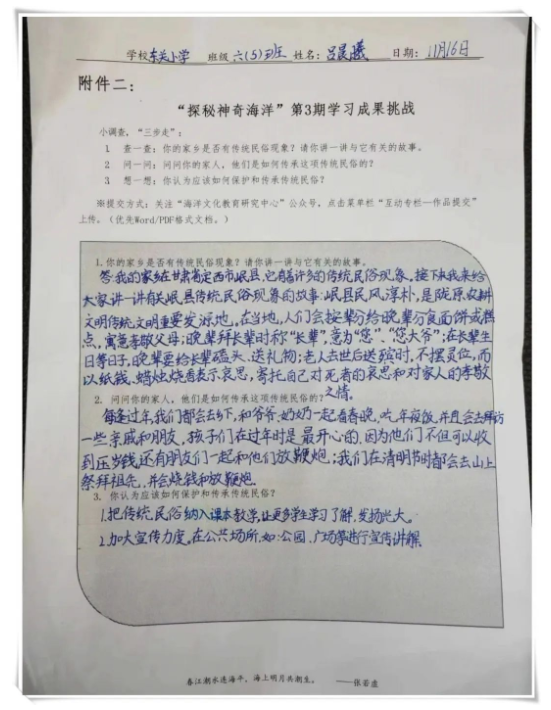 学校东关小学 班级六(5)班 姓名:吕晨曦 日期:11月16日
附件二:
“探秘神奇海洋”第3期学习成果挑战
小调查,“三步走”:
1 查一查:你的家乡是否有传统民俗现象?请你讲一讲与它有关的故事。
2 问一问:问问你的家人,他们是如何传承这项传统民俗的?
3 想一想:你认为应该如何保护和传承传统民俗?
※提交方式:关注“海洋文化教育研究中心”公众号,点击菜单栏“互动专栏—作品提交”
上传。(优先Word/PDF格式文档。)
1.你的家乡是否有传统民俗现象?请你讲一讲与它有关的故事。
答:我的家乡在甘肃省定西市岷县,它有着许多的传统民俗现象,接下来我来给
大家讲一讲有关岷县传统民俗现象的故事:岷县民风淳朴,是陇原农耕
文明传统文明重要发源地。在当地,人们会按辈分给晚辈分食面饼或糕
点,寓意孝敬父母;晚辈拜长辈时称“长辈”,意为“您”、“您大爷”;在长辈生
日等日子,晚辈要给长辈磕头、送礼物;老人去世后送殡时,不摆灵位,而
以纸钱、蜡烛烧香表示哀思,寄托自己对死者的哀思和对家人的孝敬
之情。
2. 问问你的家人,他们是如何传承这项传统民俗的?
每逢过年,我们都会去乡下,和爷爷、奶奶一起看春晚、吃年夜饭,并且会去拜访
一些亲戚和朋友,孩子们在过年时是最开心的,因为他们不但可以收
到压岁钱,还有朋友们一起和他们放鞭炮;我们在清明节时都会去山上
祭拜祖先,并会烧钱和放鞭炮.
3. 你认为应该如何保护和传承传统民俗?
1.把传统民俗纳入课本教学,让更多学生学习了解,发扬光大。
2.加大宣传力度。在公共场所,如:公园、广场等进行宣传讲解.
春江潮水连海平,海上明月共潮生。 ——张若虚